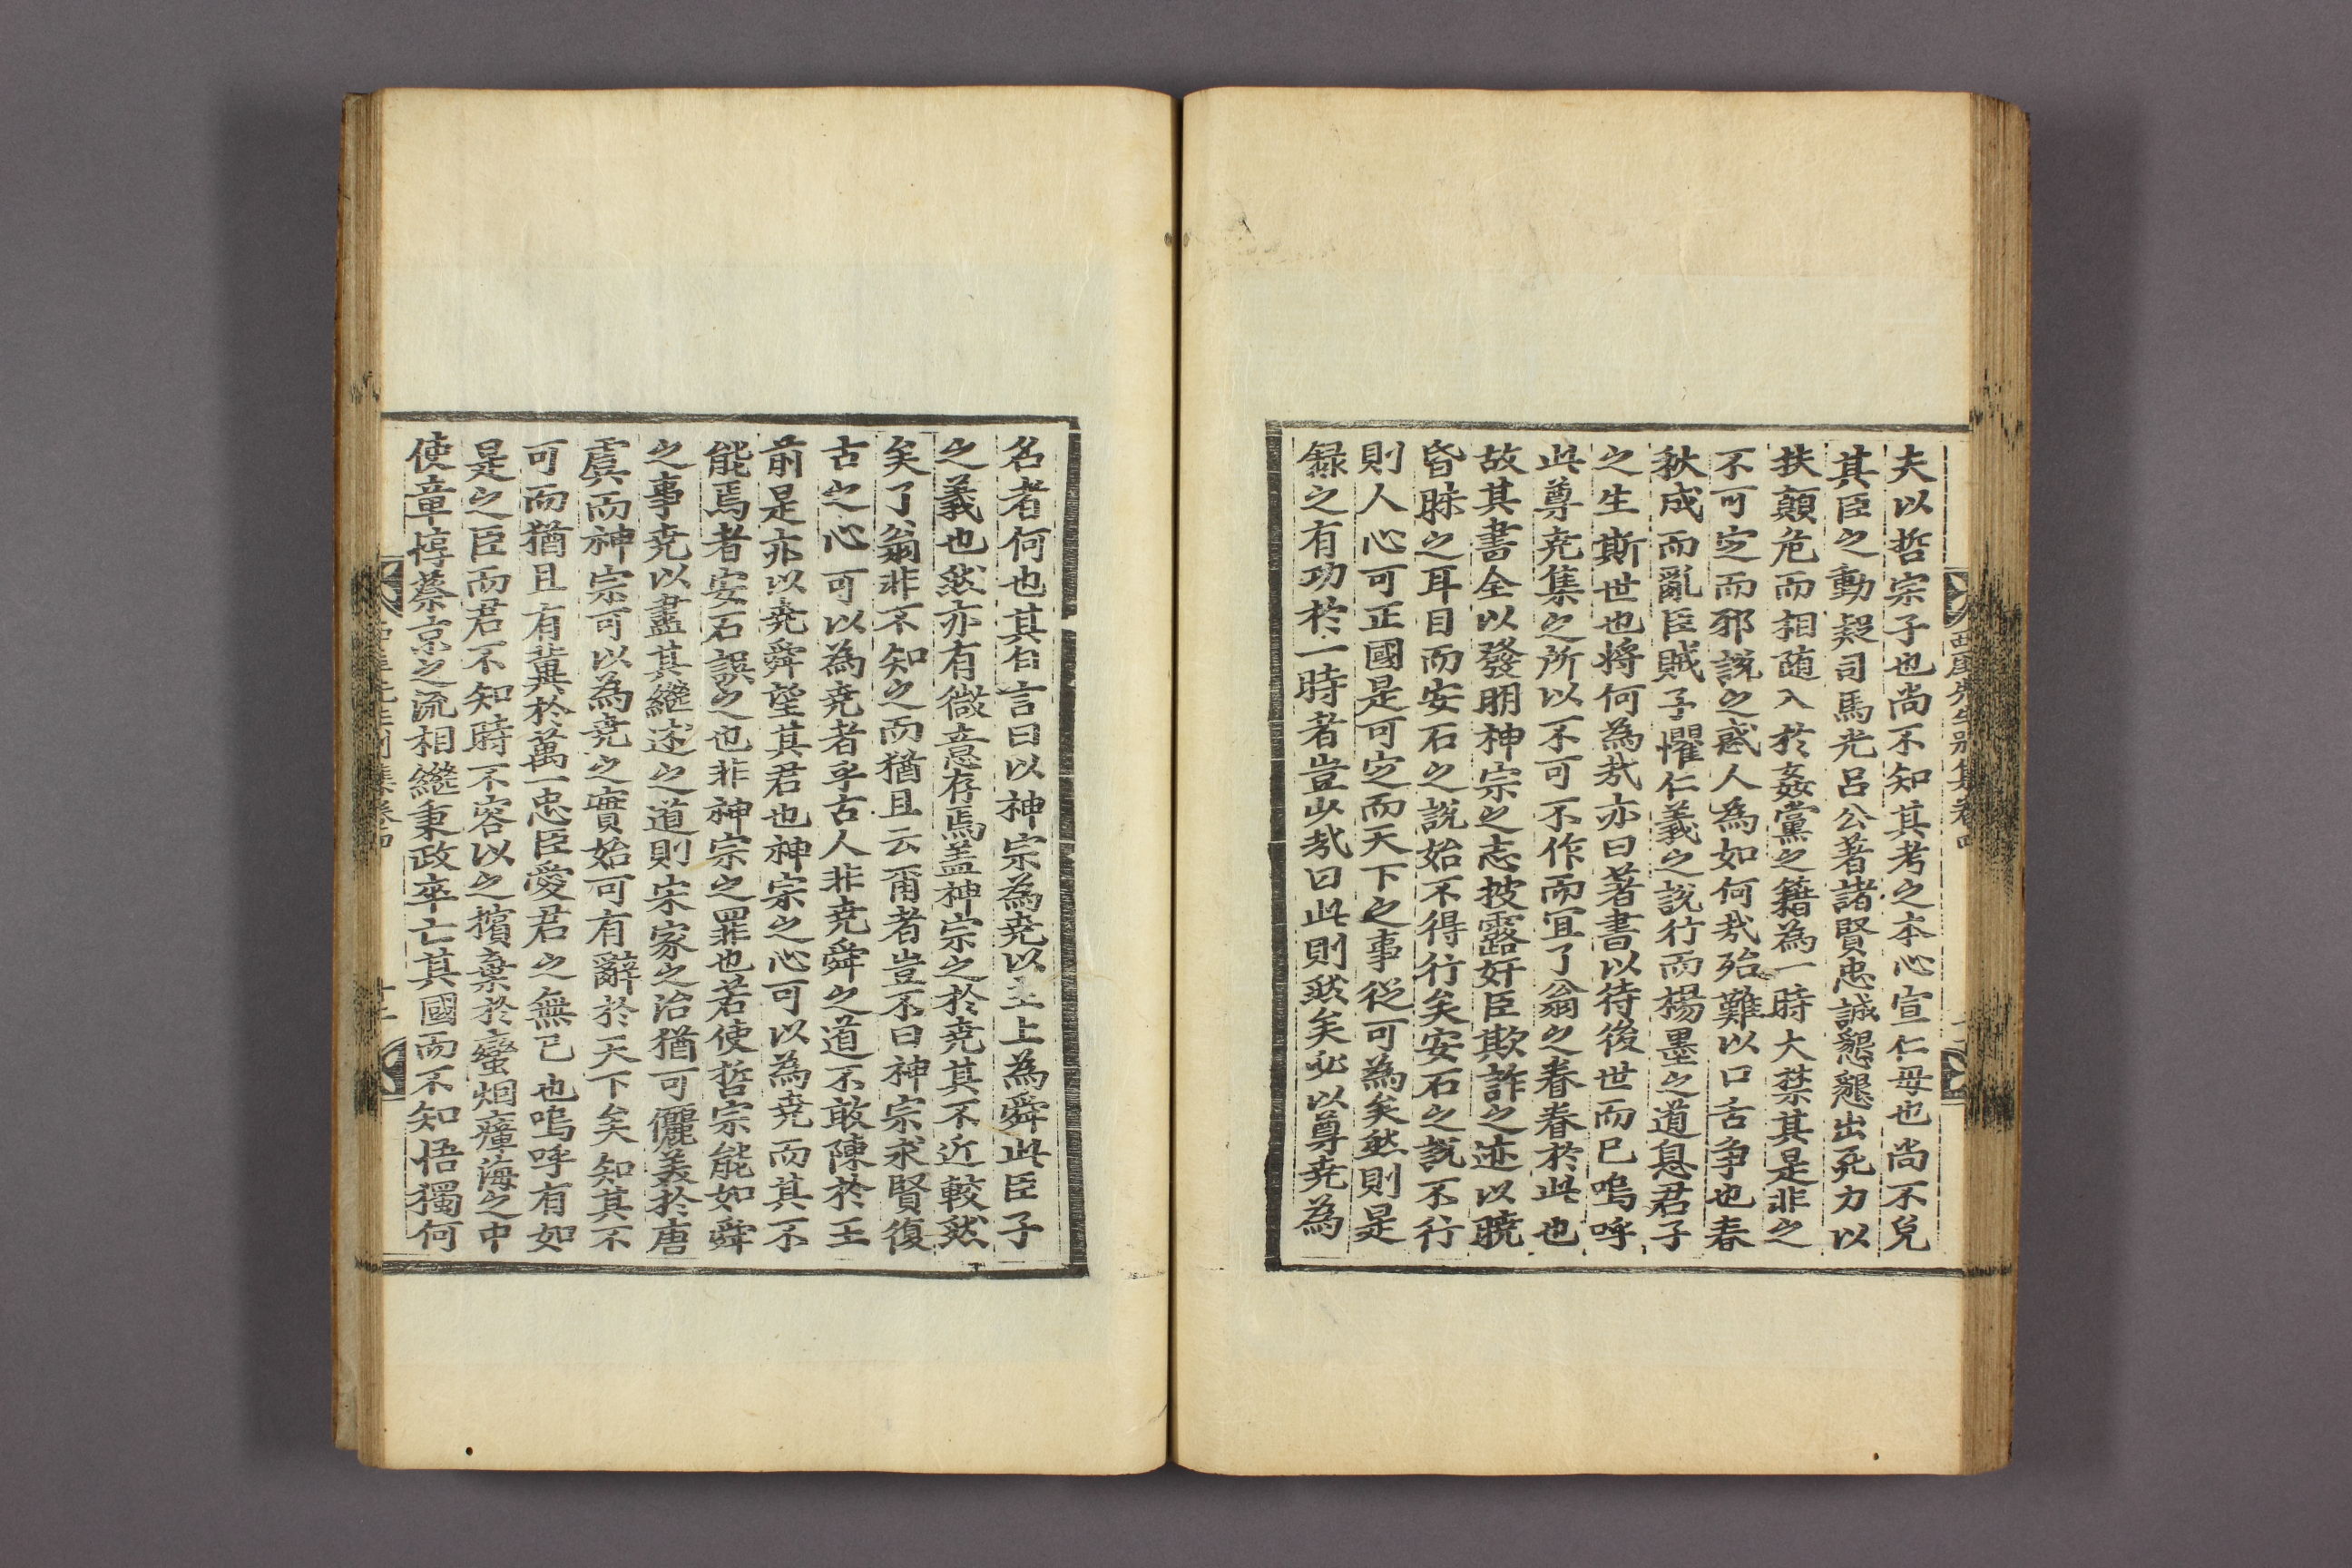 夫以哲宗子也尚不知其考之本心宣仁母也尚不免
其臣之動疑司馬光呂公著諸賢忠誠懇懇出死力以
扶顚危而相隨入於姦黨之籍為一時大禁其是非之
不可定而邪說之惑人為如何哉殆難以口舌爭也春
秋成而亂臣賊子懼仁義之說行而楊墨之道息君子
之生斯世也將何為哉亦曰著書以待後世而已嗚呼
此尊堯集之所以不可不作而宜了翁之眷眷於此也
故其書全以發明神宗之志披露奸臣欺詐之迹以曉
昏眯之耳目而安石之說始不得行矣安石之說不行
則人心可正國是可定而天下之事從可為矣然則是
錄之有功於一時者豈少哉曰此則然矣必以尊堯為
西厓先生別集卷四
名者何也其自言曰以神宗為堯以主上為舜此臣子
之義也然亦有微意存焉盖神宗之於堯其不近較然
矣了翁非不知之而猶且云爾者豈不曰神宗求賢復
古之心可以為堯者乎古人非堯舜之道不敢陳於王
前是亦以堯舜望其君也神宗之心可以為堯而其不
能焉者安石誤之也非神宗之罪也若使哲宗能如舜
之事堯以盡其繼述之道則宋家之治猶可儷美於唐
虞而神宗可以為堯之實始可有辭於天下矣知其不
可而猶且有冀於萬一忠臣愛君之無已也嗚呼有如
是之臣而君不知時不容以之擯棄於蠻烟瘴海之中
使章惇蔡京之流相繼秉政卒亡其國而不知悟獨何